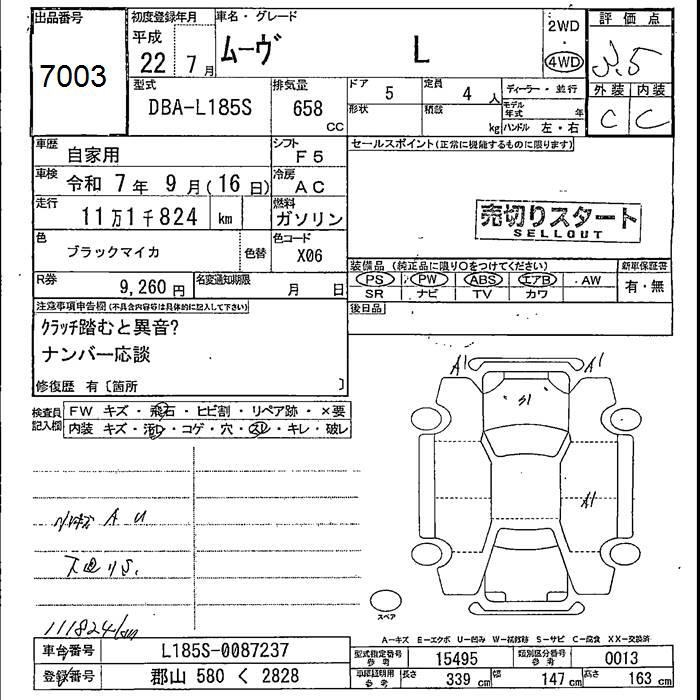 出品番号
7003
初度登録年月
平成
22 7月
車名・グレード
ムーヴ L
2WD
・
4WD
評価点
3.5
外装 内装
C C
型式
DBA-L185S
排気量
658
CC
ドア 5
定員 4 人
形状
積載 kg
ディーラー・並行
モデル年式 年
ハンドル 左・右
車歴
自家用
シフト
F5
車検 令和 7年 9月(16日)
冷房
AC
走行
11万1千824 km
燃料
ガソリン
色
ブラックマイカ
色替
色コード
X06
R券
9,260円
名変通知期限
月 日
セールスポイント(正常に機能するものに限ります)
売切りスタート
SELLOUT
装備品 (純正品に限り○をつけてください)
PS PW ABS エアB ・AW
SR ナビ TV カワ
新車保証書
有・無
後日品
注意事項申告欄(不具合内容等は具体的に記入して下さい)
クラッチ踏むと異音?
ナンバー応談
修復歴 有〔箇所 〕
検査員記入欄
FW キズ・飛石・ヒビ割・リペア跡・×要
内装 キズ・汚レ・コゲ・穴・スレ・キレ・破レ
A1 A1
S1
A1
A U
下廻りS.
111824km
スペア
A-キズ E-エクボ U-凹み W-補修跡 S-サビ C-腐食 XX-交換済
車台番号 L185S-0087237
登録番号 郡山 580 く 2828
型式指定番号 参考 15495
類別区分番号 参考 0013
車庫証明用 参考
長さ 339 cm
幅 147 cm
高さ 163 cm